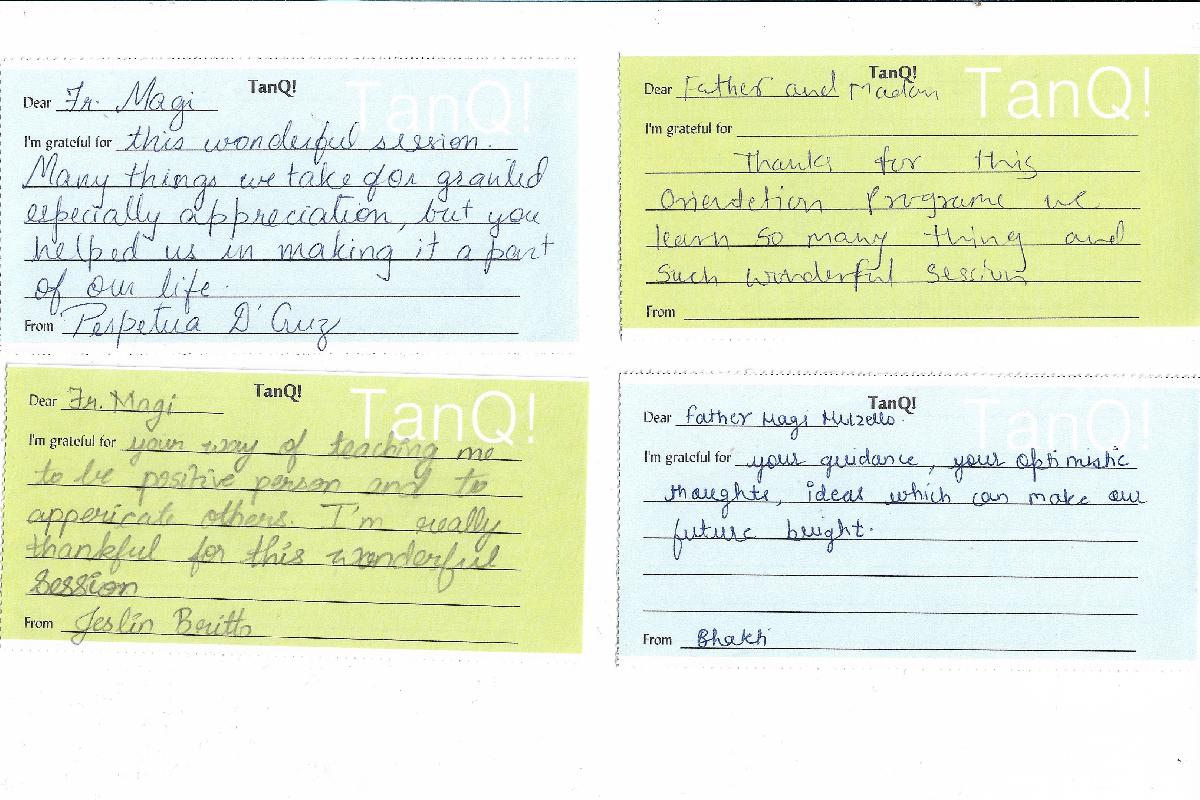 TanQ!
TanQ!
Dear Fr. Magi
I'm grateful for this wonderful session.
Many things we take for granted
especially appreciation, but you
helped us in making it a part
of our life.
From Perpetua D'Cruz
TanQ!
TanQ!
Dear Father and Madam
I'm grateful for
Thanks for this
Oriendetion Programe we
learn so many thing and
such wonderful session
From
TanQ!
TanQ!
Dear Fr. Magi
I'm grateful for your way of teaching me
to be positive person and to
appericate others. I'm really
thankful for this wonderful
session
From Jeslin Britto
TanQ!
TanQ!
Dear Father Magi Murzello.
I'm grateful for your guidance, your optimistic
thoughts, ideas which can make our
future bright.
From Bhakti